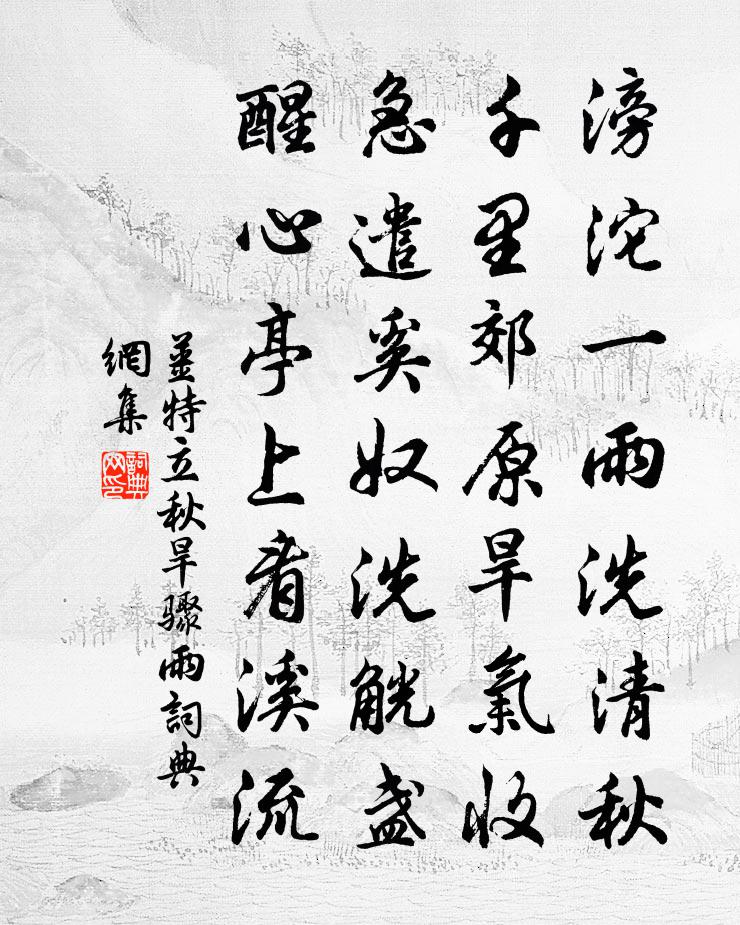 滂沱一雨洗清秋
千里郊原旱氣收
急遣奚奴洗觥盞
醒心亭上看溪流
姜特立秋旱驟雨詞典
網集
詞典
网印